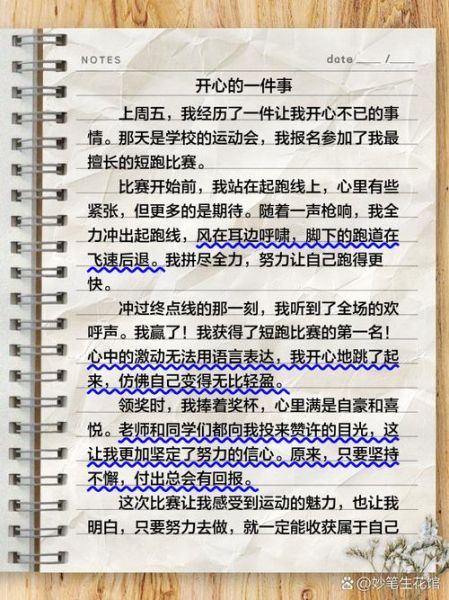 NOTES
date ____ /____
开心的一件事
上周五，我经历了一件让我开心不已的事
情。那天是学校的运动会，我报名参加了我最
擅长的短跑比赛。
比赛开始前，我站在起跑线上，心里有些
紧张，但更多的是期待。随着一声枪响，我全
力冲出起跑线，风在耳边呼啸，脚下的跑道在
飞速后退。我拼尽全力，努力让自己跑得更
快。
冲过终点线的那一刻，我听到了全场的欢
呼声。我赢了！我获得了短跑比赛的第一名！
心中的激动无法用语言表达，我开心地跳了起
来，仿佛自己变得无比轻盈。
领奖时，我捧着奖杯，心里满是自豪和喜
悦。老师和同学们都向我投来赞许的目光，这
让我更加坚定了努力的信心。原来，只要坚持
不懈，付出总会有回报。
这次比赛让我感受到运动的魅力，也让我
明白，只要努力去做，就一定能收获属于自己
@妙笔生花馆